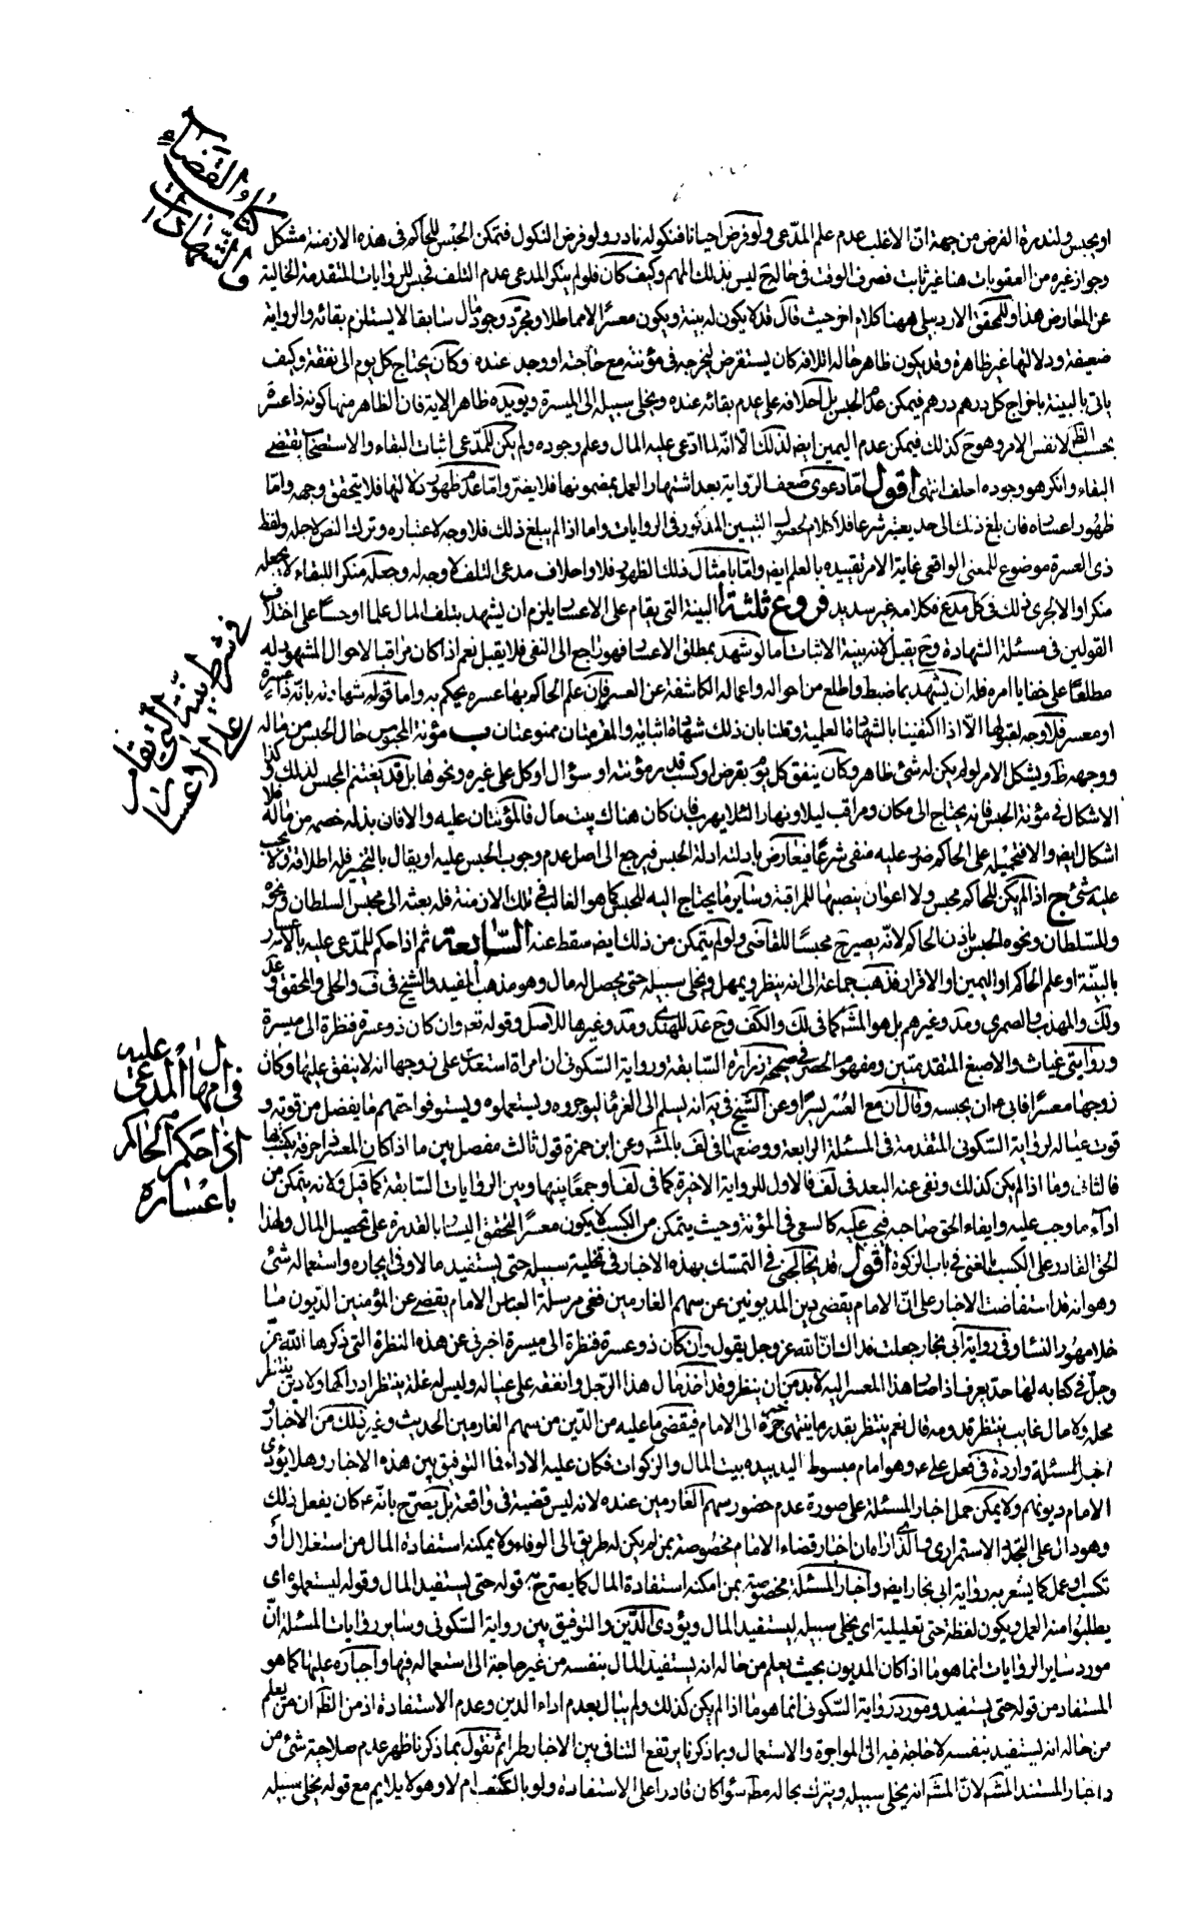 كتاب القضاء
والشهادات
او يحبس ولندرة الفرض من جهة ان الاغلب عدم علم المدعى ولو فرض احيانا فنكوله نادر ولو فرض النكول فتمكن الحبس للحاكم فى هذه الازمنة مشكل
وجواز غيره من العقوبات هنا غير ثابت فصرف الوقت فى ليس بذلك المهم وكيف كان فلو لم ينكر المدعى عدم التلف فيحبس للروايات المتقدمة الخالية
عن المعارض هذا وللمحقق الاردبيلى ههنا كلام اخر حيث قال قد لا يكون له بينة ويكون معسرا لا مماطلا ومجرد وجود مال سابقا لا يستلزم بقائه والرواية
ضعيفة ودلالتها غير ظاهرة وقد يكون ظاهر حاله اتلافه كان يستقرض ليخرجه فى مؤنته مع حاجته او وجد عنده وكان يحتاج كل يوم الى نفقة وكيف
ياتى بالبينة باخراج كل درهم درهم فيمكن عدم الحبس بل احلافه على عدم بقائه عنده ويخلى سبيله الى الميسرة ويؤيده ظاهر الاية فان الظاهر منها كونه ذا عسرة
بحسب الظ لا نفس الامر وهو ح كذلك فيمكن عدم اليمين ايضا لذلك الا انه لما ادعى عليه المال وعلم وجوده ولم يكن للمدعى اثبات البقاء والاستصحاب يقتضى
البقاء وانكر هو وجوده احلف انتهى اقول اما دعوى ضعف الرواية بعد اشتهار العمل بمضمونها فلا يضر واما عدم ظهور دلالتها فلا يتحقق وجهه واما
ظهور اعساره فان بلغ ذلك الى حد يعتبر شرعا فلا كلام لحصول التبيين المذكور فى الروايات واما اذا لم يبلغ ذلك فلا وجه لاعتباره وترك النص لاجله ولفظ
ذى العسرة موضوع للمعنى الواقعى غاية الامر تقييده بالعلم ايضا واما بامثال ذلك الظهور فلا واحلاف مدعى التلف لا وجه له وجعله منكرا للبقاء لا يجعله
منكرا والا لجرى ذلك فى كل مدع فكلامه غير سديد فروع ثلثة ا البينة التى يقام على الاعسار يلزم ان يشهد بتلف المال علما او حسا على اختلاف
القولين فى مسئلة الشهادة وح يقبل لانه بينة الاثبات اما لو شهد بمطلق الاعسار فهو راجع الى النفى فلا يقبل نعم اذا كان مراقبا لاحوال المشهود له
مطلعا على خفايا امره فله ان يشهد بما ضبط واطلع من احواله واعماله الكاشفة عن العسر فان علم الحاكم بها عسره يحكم به واما قوله شهادته بانه ذا عسرة
او معسر فلا وجه لقبولها الا اذا اكتفينا بالشهادة العلمية وقلنا بان ذلك شهادة اثباتية والمقدمتان ممنوعتان ب مؤنة المحبوس حال الحبس من ماله
ووجهه ظ ويشكل الامر لو لم يكن له شئ ظاهر وكان ينفق كل يوم بقرض او كسب قدر مؤنته او سؤال او كل على غيره ونحوها بل قد يغتنم الحبس لذلك وكذا
الاشكال فى مؤنة الحبس فانه يحتاج الى مكان ومراقب ليلا ونهارا لئلا يهرب فان كان هناك بيت مال فالمؤنتان عليه والا فان بذله خصمه من ماله فلا
اشكال ايضا والا فتحميله على الحاكم ضرر عليه منفى شرعا فيعارض بادلته ادلة الحبس فيرجع الى اصل عدم وجوب الحبس عليه او يقال بالتخيير فله اطلاقه ولا يجب
عليه شئ ج اذا لم يكن للحاكم محبس ولا اعوان ينصبها للمراقبة وساير ما يحتاج اليه للحبس كما هو الغالب فى تلك الازمنة فله بعثه الى محبس السلطان ونحوه
وللسلطان ونحوه الحبس باذن الحاكم لانه يصير ح محبسا للقاضى ولو لم يتمكن من ذلك ايضا سقط عنه السابعة ثم اذا حكم للمدعى عليه بالاعسار
بالبينة او علم الحاكم او اليمين او الاقرار فذهب جماعة الى انه ينظر ويمهل ويخلى سبيله حتى يحصل له مال وهو مذهب المفيد والشيخ فى ف والحلى والمحقق و عد
ولك والمهذب والصمرى ومد وغيرهم بل هو المشه كما فى لك والكف وح عد للهندى ومد وغيرها للاصل وقوله تعم وان كان ذو عسرة فنظرة الى ميسرة
وروايتى غياث والاصبغ المتقدمتين ومفهوم الحصر فى صحيحة زرارة السابقة ورواية السكونى ان امراة استعدت على زوجها انه لا ينفق عليها وكان
زوجها معسرا فابى ع ان يحبسه وقال ان مع العسر يسرا وعن الشيخ فى ية انه يسلم الى الغرماء ليوجروه ويستعملوه ويستوفوا حقهم ما يفضل من قوته و
قوت عياله لرواية السكونى المتقدمة فى المسئلة الرابعة ووصفها فى لف بالمشه وعن ابن حمزة قول ثالث مفصل بين ما اذا كان المعسر ذا حرفة يكتسبها
فالثانى وما اذا لم يكن كذلك ونفى عنه البعد فى لف فالاول للرواية الاخيرة كما فى لف وجمعا بينها وبين الروايات السابقة كما قيل ولانه يتمكن من
اداء ما وجب عليه وايفاء الحق صاحبه فيجب عليه كالسعى فى المؤنة وحيث يتمكن من الكسب لا يكون معسرا لتحقق اليسار بالقدرة على تحصيل المال ولهذا
الحق القادر على الكسب بالغنى فى باب الزكوة اقول قد يخالجنى فى التمسك بهذه الاخبار فى تخلية سبيله حتى يستفيد مالا وفى ايجاره واستعماله شئ
وهو انه قد استفاضت الاخبار على ان الامام يقضى دين المديونين عن سهم الغارمين ففى مرسلة العباس الامام يقضى عن المؤمنين الديون ما
خلا مهور النساء وفى رواية ابى نجار جعلت فداك ان الله عز وجل يقول وان كان ذو عسرة فنظرة الى ميسرة اخبرنى عن هذه النظرة التى ذكرها الله عز
وجل فى كتابه لها حد يعرف اذا صار هذا المعسر اليه لابد من ان ينظر وقد اخذ مال هذا الرجل وانفقه على عياله وليس له غلة ينتظر ادراكها ولا دين ينتظر
محله ولا مال غايب ينتظر قدومه قال نعم ينتظر بقدر ما ينتهى خبره الى الامام فيقضى ما عليه من الدين من سهم الغارمين الحديث وغير ذلك من الاخبار و
اخبار المسئلة واردة فى فعل على ع وهو امام مبسوط اليد بيده بيت المال والزكوات فكان عليه الاداء فما التوفيق بين هذه الاخبار وهلا يؤدى
الامام ديونهم ولا يمكن حمل اخبار المسئلة على صورة عدم حضور سهم الغارمين عنده لانه ليس قضية فى واقعة بل يصرح بانه ع كان يفعل ذلك
وهو دال على التجدد الاستمرارى والذى اراه ان اخبار قضاء الامام مخصوصة بمن لم يكن له طريق الى الوفاء ولا يمكنه استفادة المال من استغلال او
تكسب او عمل كما يشعر به رواية ابى نجار ايضا واخبار المسئلة مخصوصة بمن امكنه استفادة المال كما يصرح به قوله حتى يستفيد المال وقوله ليستعملوه اى
يطلبوا منه العمل ويكون لفظة حتى تعليلية اى يخلى سبيله ليستفيد المال ويؤدى الدين والتوفيق بين رواية السكونى وساير روايات المسئلة ان
مورد ساير الروايات انما هو ما اذا كان المديون بحيث يعلم من حاله انه يستفيد المال بنفسه من غير حاجة الى استعماله فيها واجباره عليها كما هو
المستفاد من قوله حتى يستفيد ومورد رواية السكونى انما هو ما اذا لم يكن كذلك ولم يبال بعدم اداء الدين وعدم الاستفادة اذ من الظ ان من يعلم
من حاله انه يستفيد بنفسه لا حاجة فيه الى المواجرة والاستعمال وبما ذكرنا يرتفع التنافى بين الاخبار طرا ثم نقول بما ذكرنا ظهر عدم صلاحية شئ من
الاخبار لمستند المشه لان المشه انه يخلى سبيله ويترك بحاله مط سواء كان قادرا على الاستفادة ولو بالتكفف ام لا وهو لا يلايم مع قوله يخلى سبيله
فى شرط بينة التى يقام
على الاعسار
فى امهال المدعى عليه
اذا حكم الحاكم
باعساره